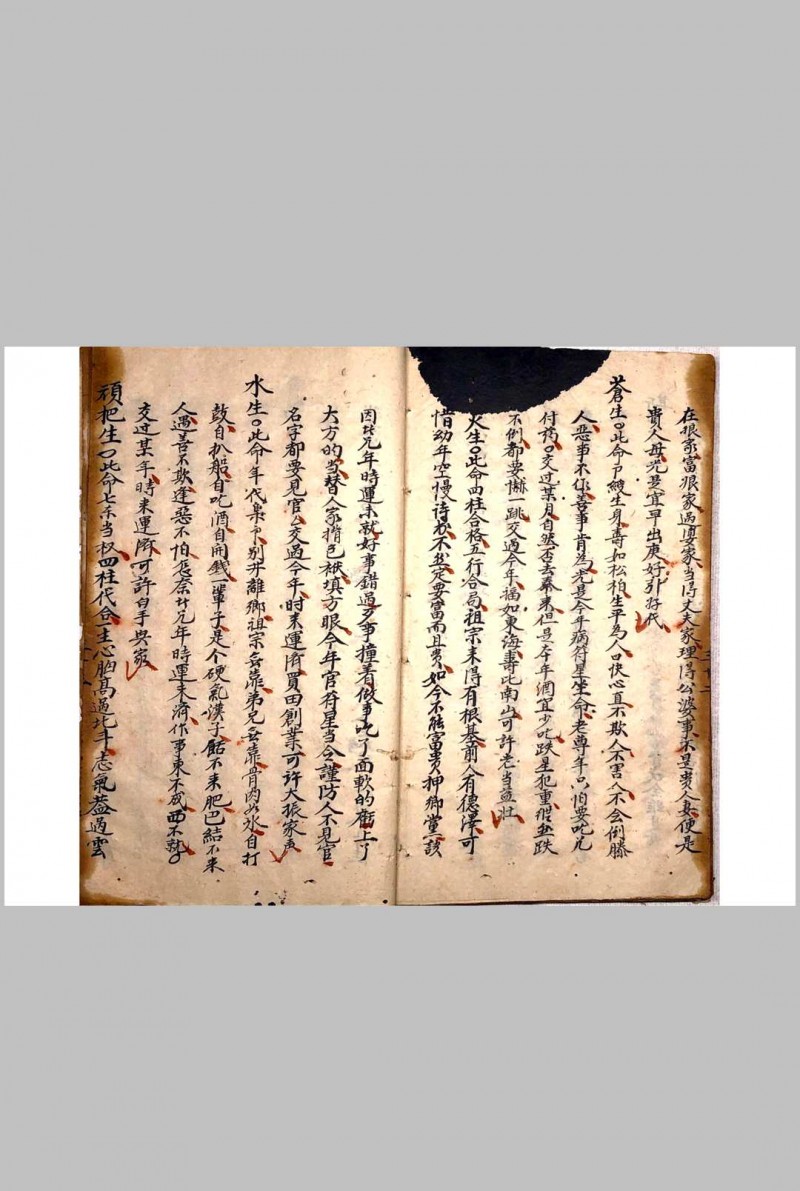 在娘家富娘家過婆家当得丈夫家理得公婆事不是贵人妻便是
貴人母宜早出庚好引好代
蒼生〇此命身寿如松柏生平為人口快心直不欺人不害人不会倒
人惡事不作善事肯為今年病符星坐命老尊年只怕要吃
付葯〇交过某月自然否去泰来但是本年酒宜少吃跌星犯重
不倒都要一跳交過今年福如東海壽比南山可許老当益壮
火生〇此命四柱合格五行合局祖宗来得有根基前人有德澤可
惜幼年空慢詩不然定要富而且贵如今不能富贵押鄉黨該
因此元年時運未就好事錯過歹事撞着做事吃了面軟的虧上了
大方的当替人家揹包袱填方眼今年官符星当令謹防人不見官
名字都要見官〇交過今年時来運濟買田創業可許大振家声
水生〇此命年代梟印別井離鄉祖宗無靠弟兄無靠骨肉如水自打
鼓自扒船自吃酒自開錢一輩子是个硬氣漢子不来肥巴結不来
人遇善不欺逢惡不怕年時運未濟作事東不成西不就〇
交过某年時来運濟可許白手興家
頑把生〇此命七杀当权四柱代合一生心胸高過北斗志氣盖過雲